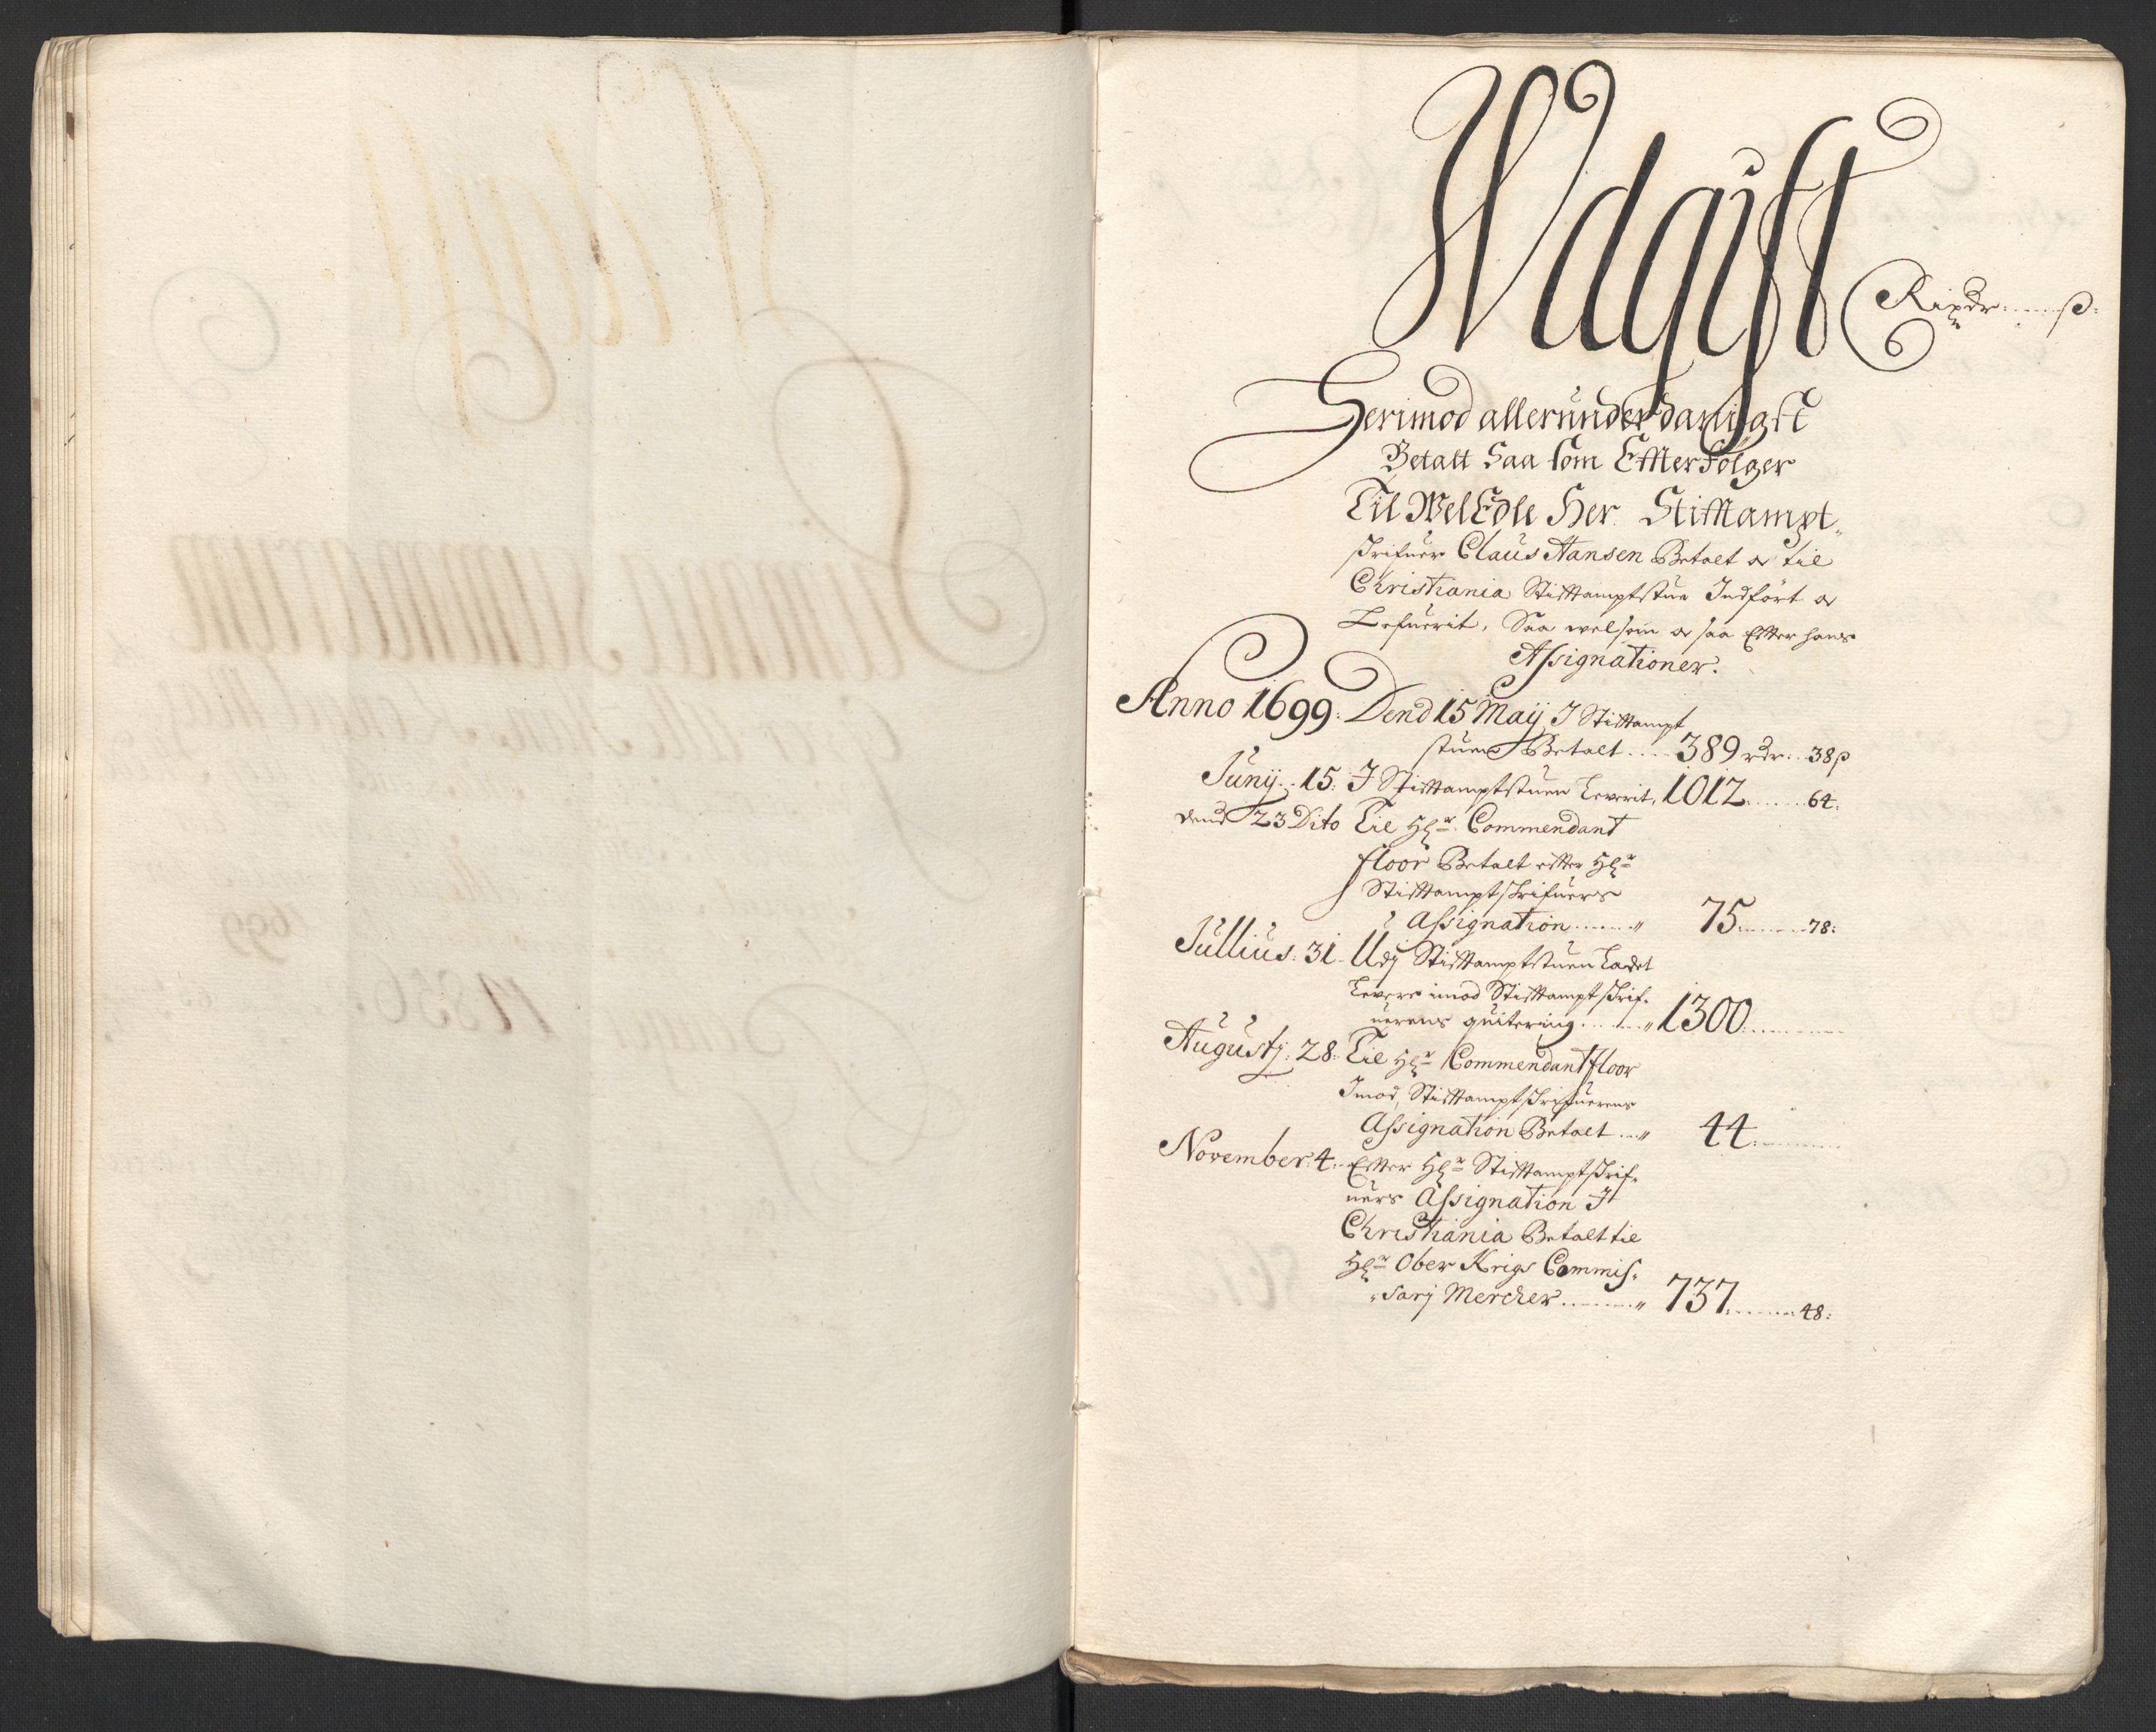 Wdgift
Rixdr ..... ß:
Herimod allerunderdanigst
Betalt Saa som Effterfølger
Til WelEdle Her Stifftampt„
skrifuer Claus Hansen Betalt oc til
Christiania Stifftamptstue Indført oc
Lefuerit, Saa welsom oc saa Effter hans
Assignationer.
Anno 1699: Dend 15 Maij J Stifftampt
stuen Betalt .... 389 rdr .. 38 ß
Junij .. 15: J Stifftamptstuen Leverit, 1012 ...... 64:
dend 23 Dito Til Hr: Commendant
floor Betalt effter Hr
Stifftamptskrifuers
Assignation ...... „ 75 ....... 78:
Jullius: 31. Udj Stifftamptstuen Ladet
Levere imod Stifftamptskrif„
uerens quitering ...... „ 1300 .........
Augustj: 28: Til Hr Commendant floor
Imod, Stifftamptskrifuerens
Assignation Betalt ... „ 44 .........
November: 4. Effter Hr Stifftamptskrif„
uers Assignation J
Christiania Betalt til
Hr Ober Krigs Commis„
„sarj Mercker ........ „ 737 ....... 48: